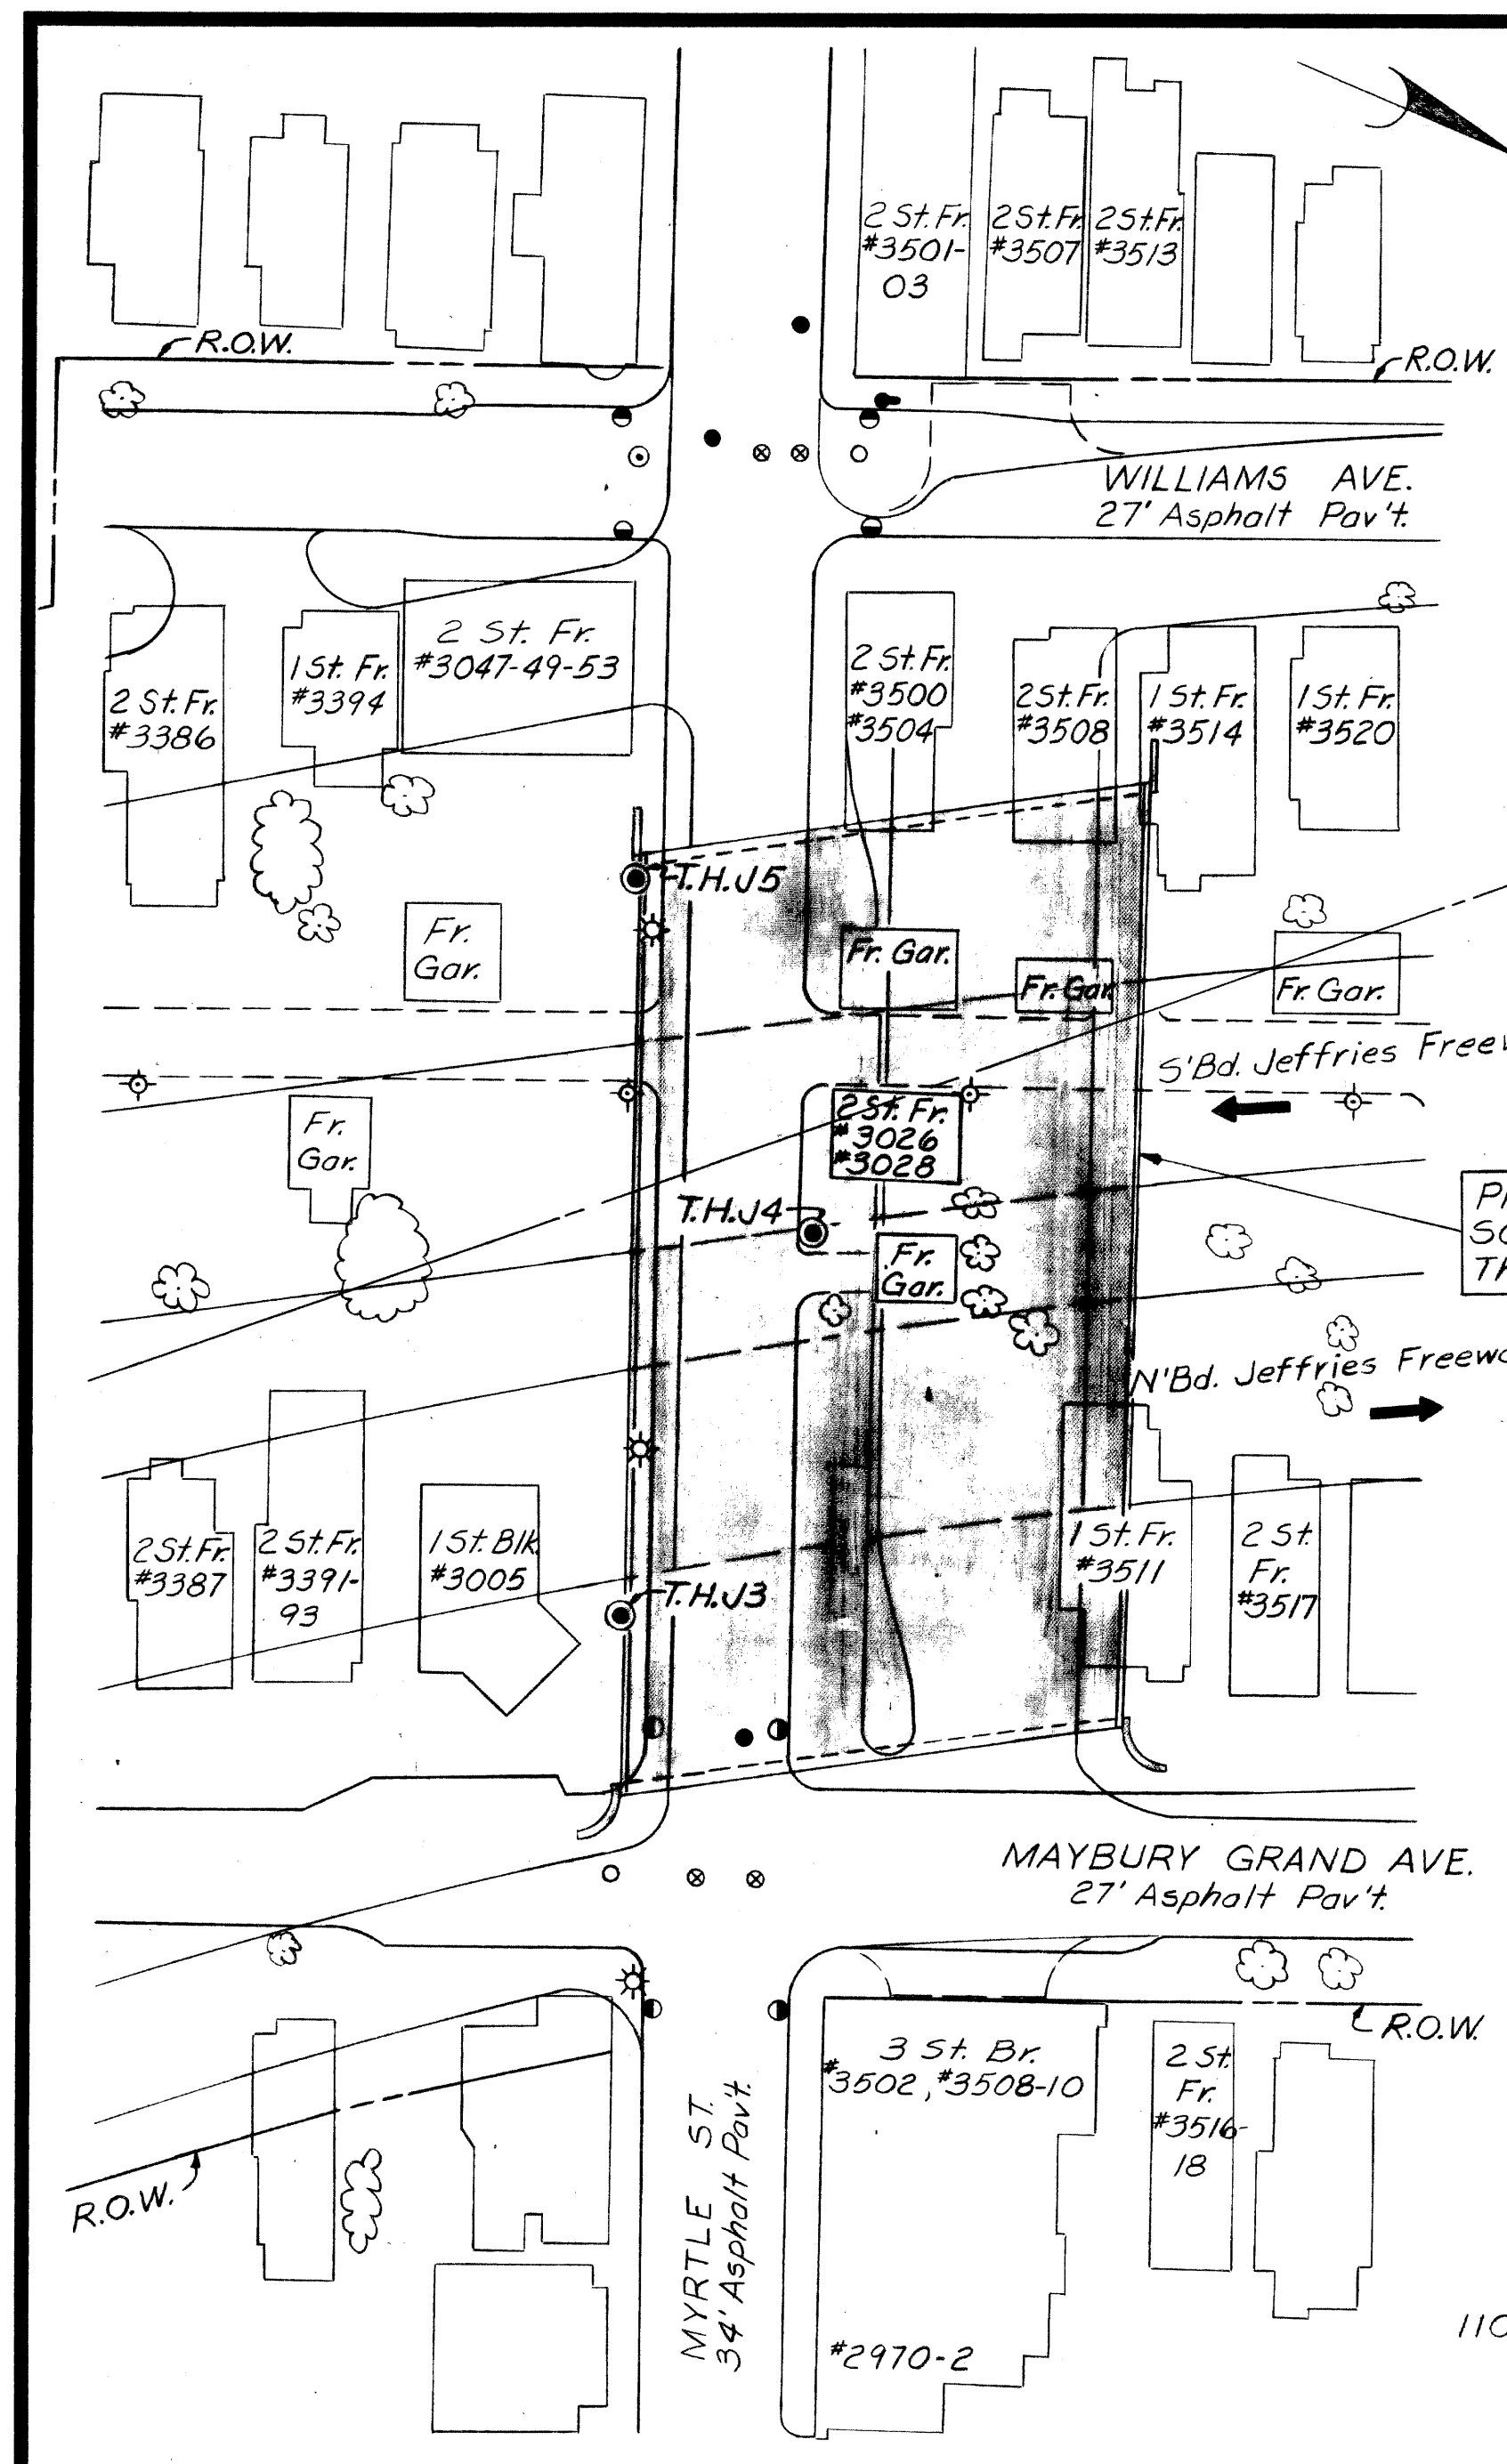 2 St. Fr.
#3501-
03
2 St. Fr.
#3507
2 St. Fr.
#3513
R.O.W.
R.O.W.
WILLIAMS AVE.
27' Asphalt Pav't.
2 St. Fr.
#3386
1 St. Fr.
#3394
2 St. Fr.
#3047-49-53
2 St. Fr.
#3500
#3504
2 St. Fr.
#3508
1 St. Fr.
#3514
1 St. Fr.
#3520
T.H.J5
Fr.
Gar.
Fr. Gar.
Fr. Gar.
Fr. Gar.
S'Bd. Jeffries Freew
Fr.
Gar.
2 St. Fr.
#3026
#3028
T.H.J4
Fr.
Gar.
N'Bd. Jeffries Freewa
2 St. Fr.
#3387
2 St. Fr.
#3391-
93
1 St. Blk.
#3005
T.H.J3
1 St. Fr.
#3511
2 St.
Fr.
#3517
MAYBURY GRAND AVE.
27' Asphalt Pav't.
R.O.W.
3 St. Br.
#3502, #3508-10
2 St.
Fr.
#3516-
18
R.O.W.
MYRTLE ST.
34' Asphalt Pav't.
#2970-2
110